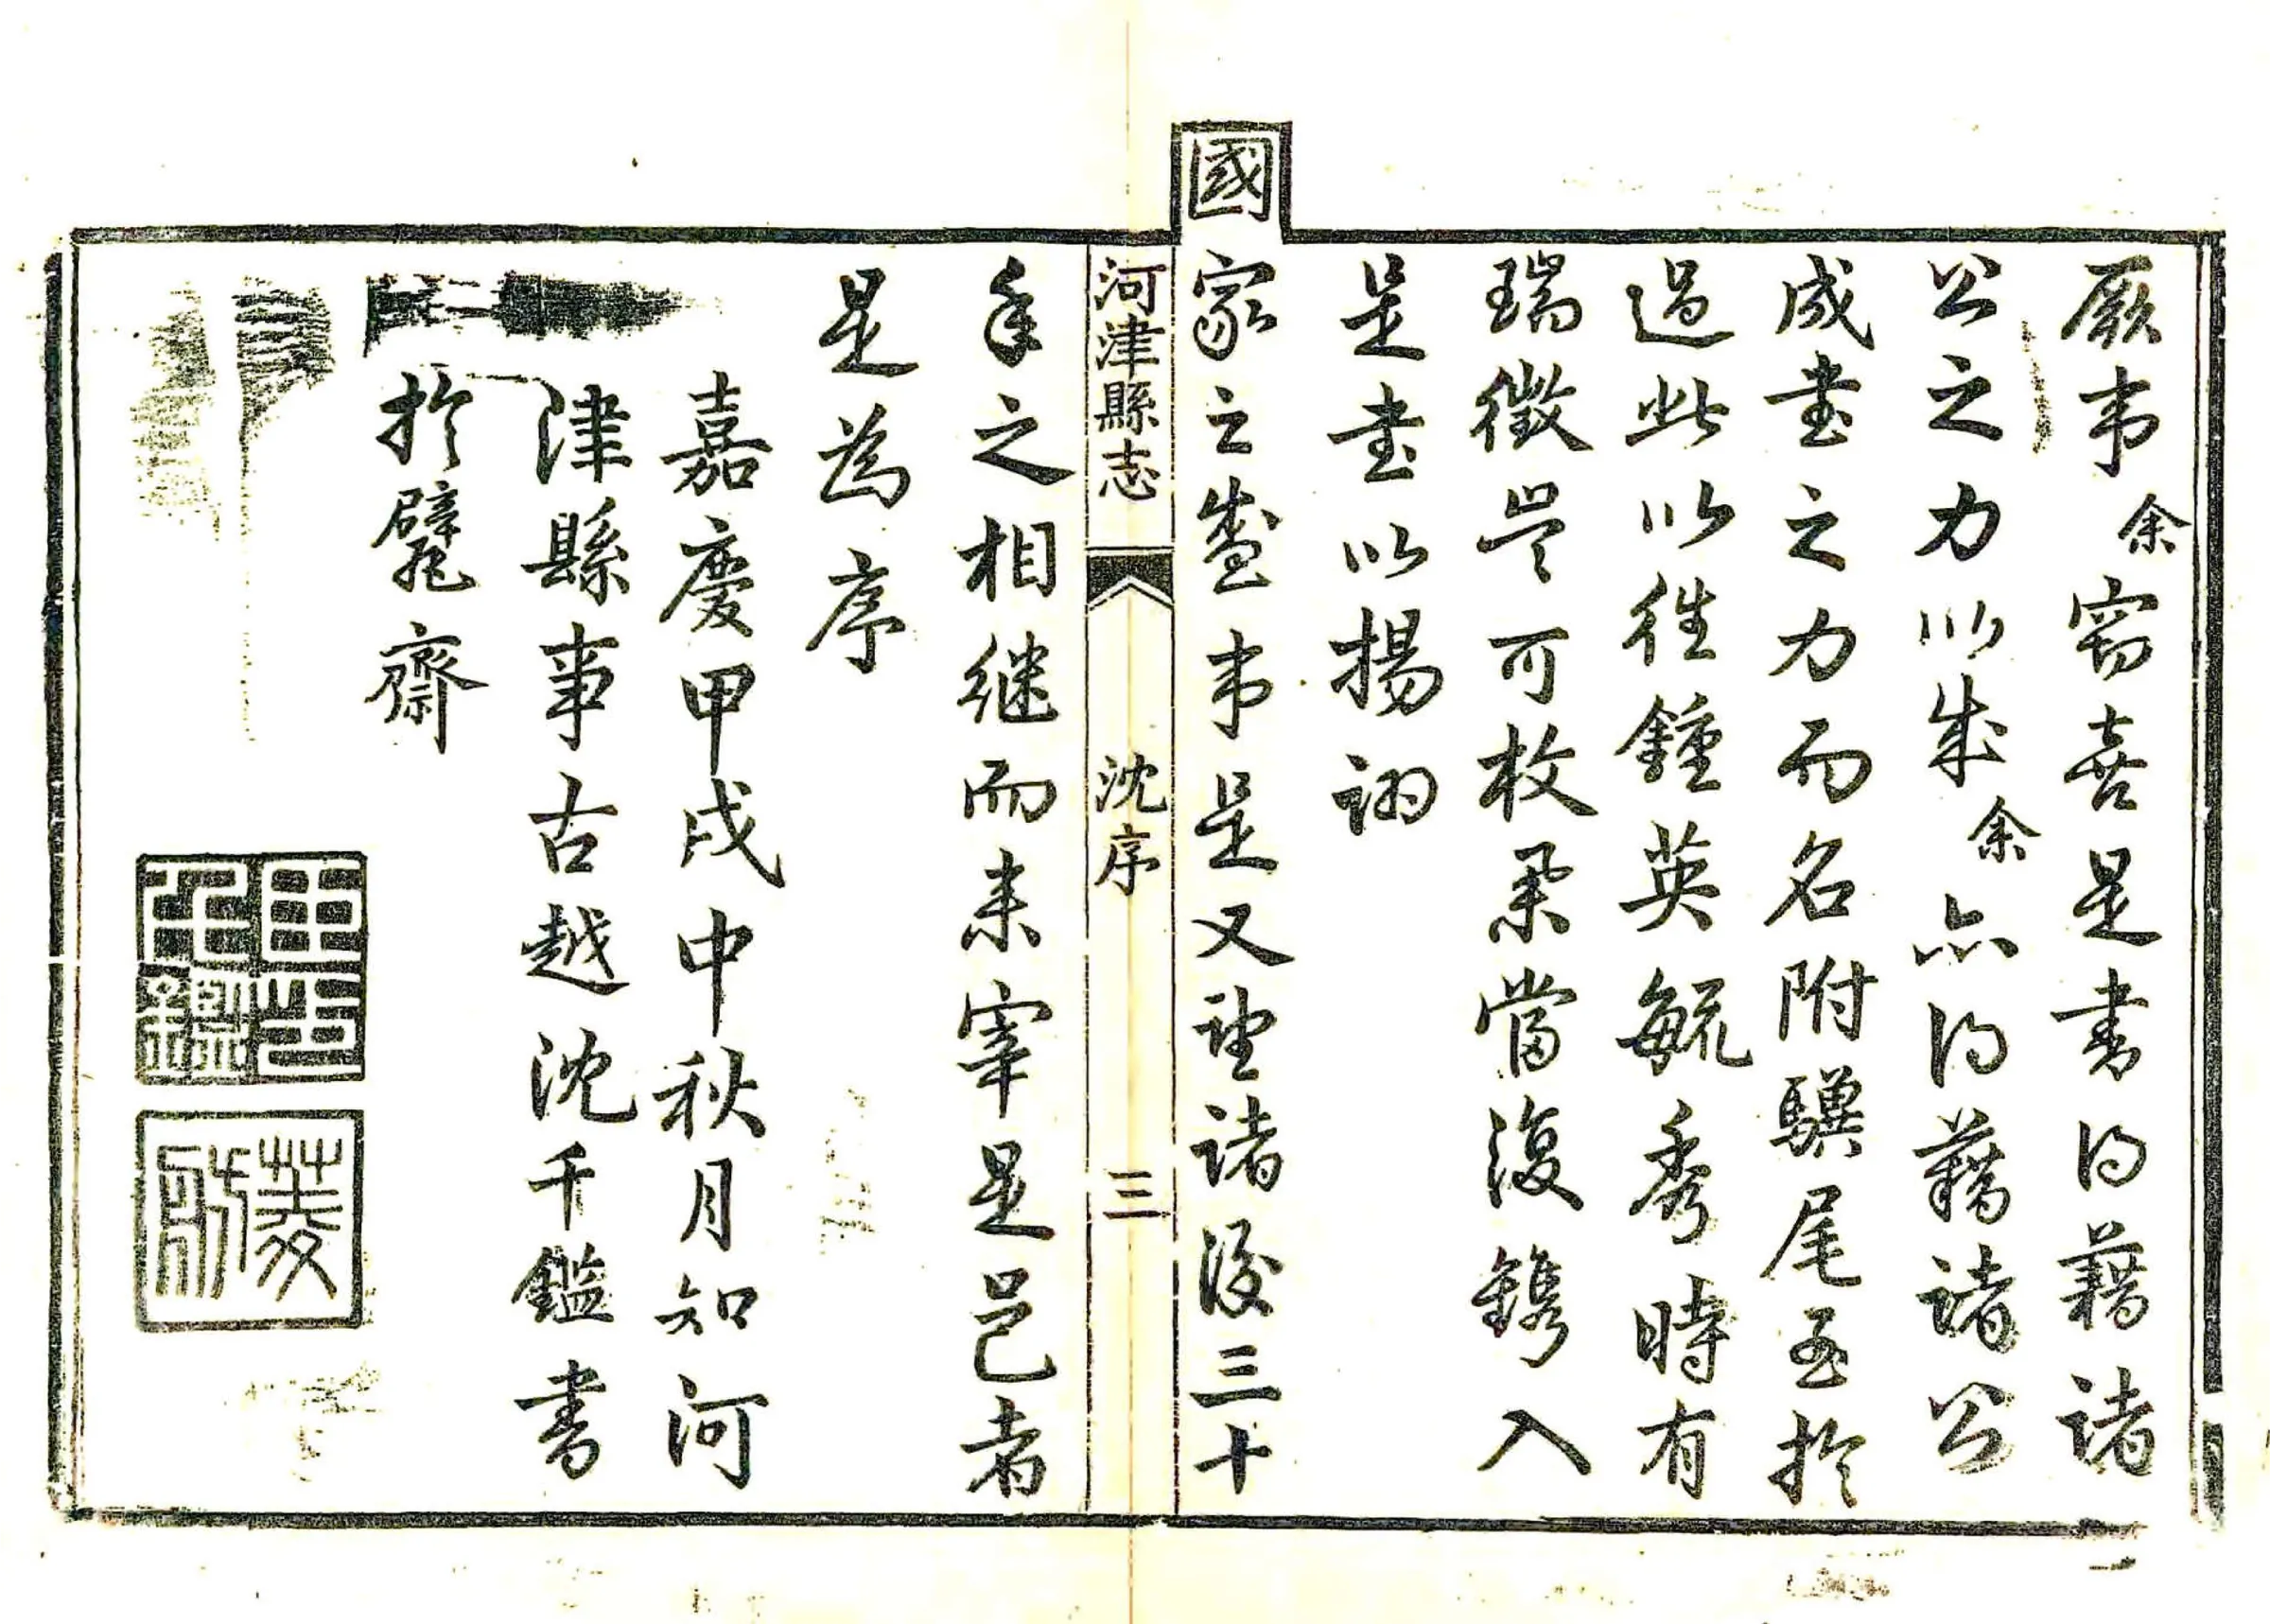 厥事余窃喜是書得藉諸
公之力以成余亦得藉諸公
成書之力而名附驥尾至於
過此以往鍾英毓秀時有
瑞徵是可枚舉當復鐫入
是書以揚詡
國
家之盛事是又望諸後三十
河津縣志
沈序
三
年之相繼而来宰是邑者
是為序
嘉慶甲戌中秋月知河
津縣事古越沈千鑑書
於甓齋